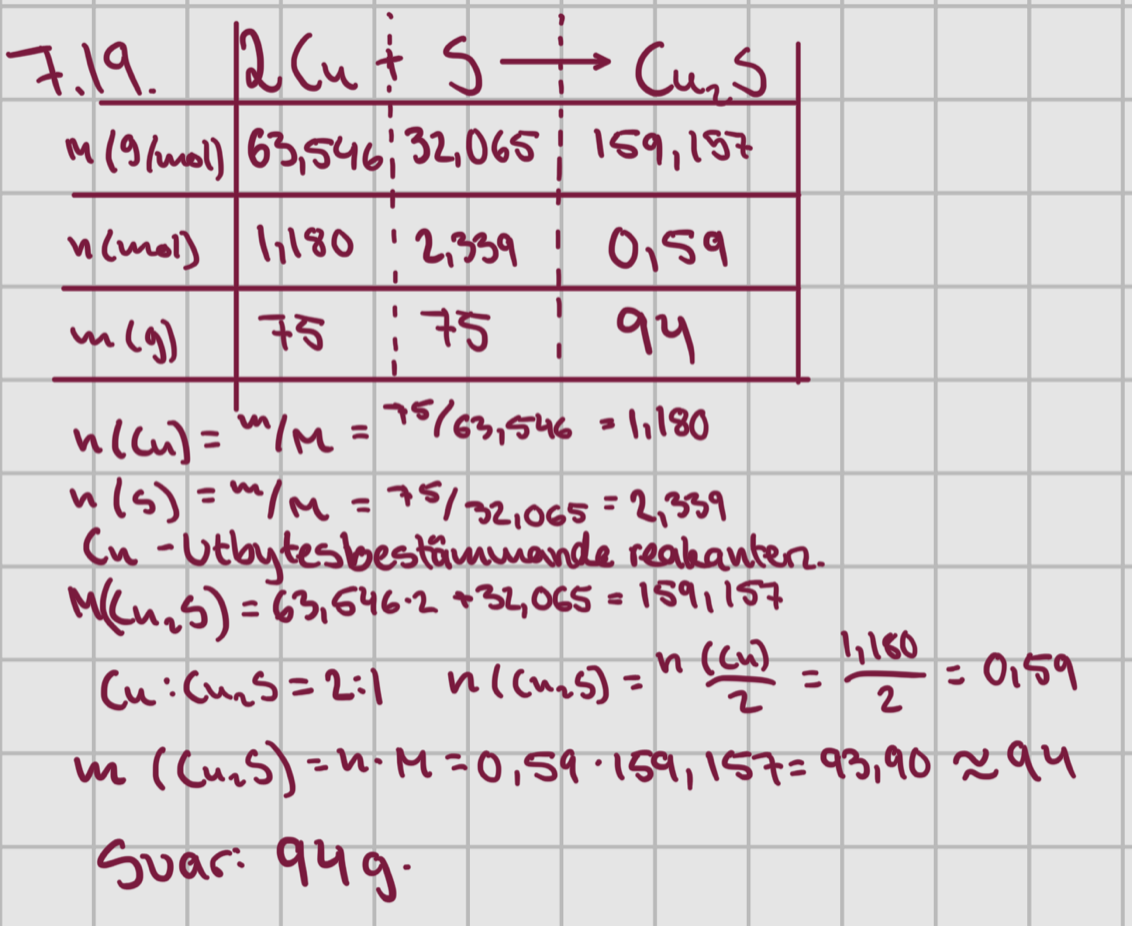 7.19. 2Cu + S → Cu₂S
M (g/mol) 63,546 32,065 159,157
n (mol) 1,180 2,339 0,59
m (g) 75 75 94
n (Cu) = m/M = 75/63,546 = 1,180
n (S) = m/M = 75/32,065 = 2,339
Cu - Utbytesbestämmande reakanten.
M(Cu₂S) = 63,546·2 + 32,065 = 159,157
Cu : Cu₂S = 2:1 n (Cu₂S) = n (Cu)/2 = 1,180/2 = 0,59
m (Cu₂S) = n · M = 0,59 · 159,157 = 93,90 ≈ 94
Svar: 94 g.